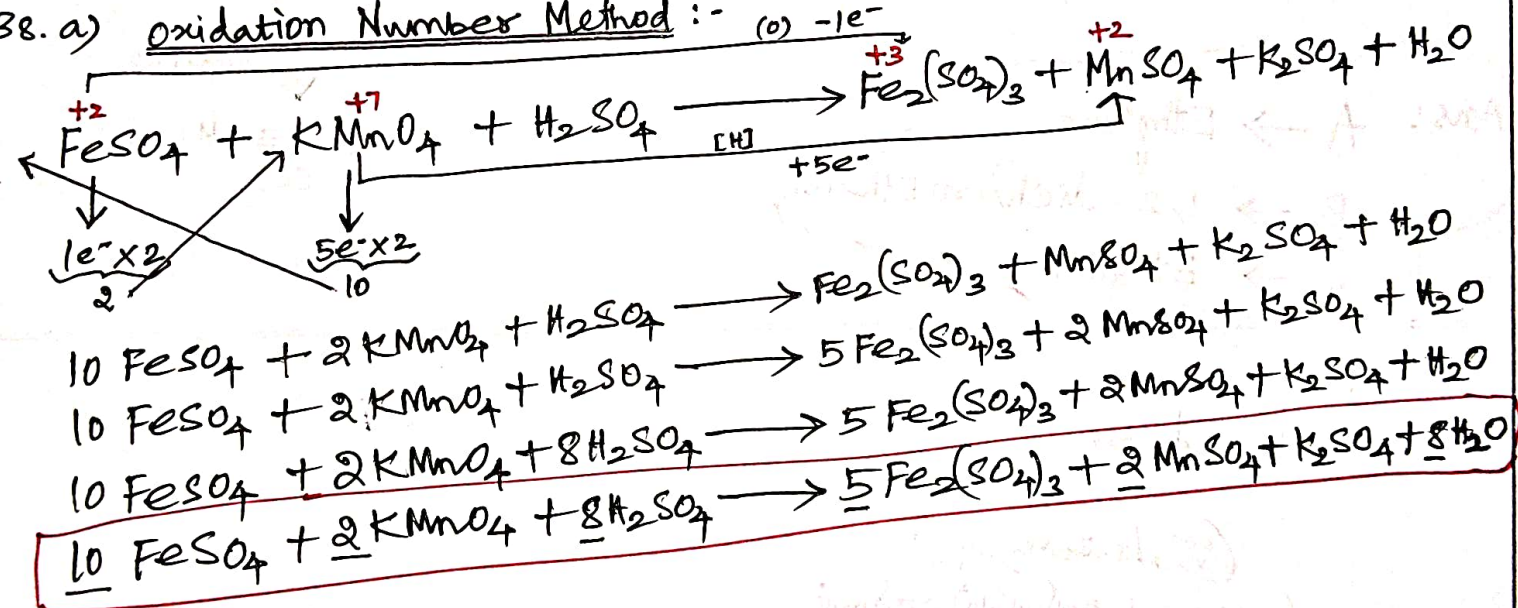 38. a) Oxidation Number Method :-
(O) -1e⁻
+2 +7 +3 +2
FeSO₄ + KMnO₄ + H₂SO₄ ⟶ Fe₂(SO₄)₃ + MnSO₄ + K₂SO₄ + H₂O
[H]
+5e⁻
1e⁻×2 5e⁻×2
2 10
10 FeSO₄ + 2 KMnO₄ + H₂SO₄ ⟶ Fe₂(SO₄)₃ + MnSO₄ + K₂SO₄ + H₂O
10 FeSO₄ + 2 KMnO₄ + H₂SO₄ ⟶ 5 Fe₂(SO₄)₃ + 2 MnSO₄ + K₂SO₄ + H₂O
10 FeSO₄ + 2 KMnO₄ + 8H₂SO₄ ⟶ 5 Fe₂(SO₄)₃ + 2 MnSO₄ + K₂SO₄ + H₂O
10 FeSO₄ + 2 KMnO₄ + 8H₂SO₄ ⟶ 5 Fe₂(SO₄)₃ + 2 MnSO₄ + K₂SO₄ + 8H₂O